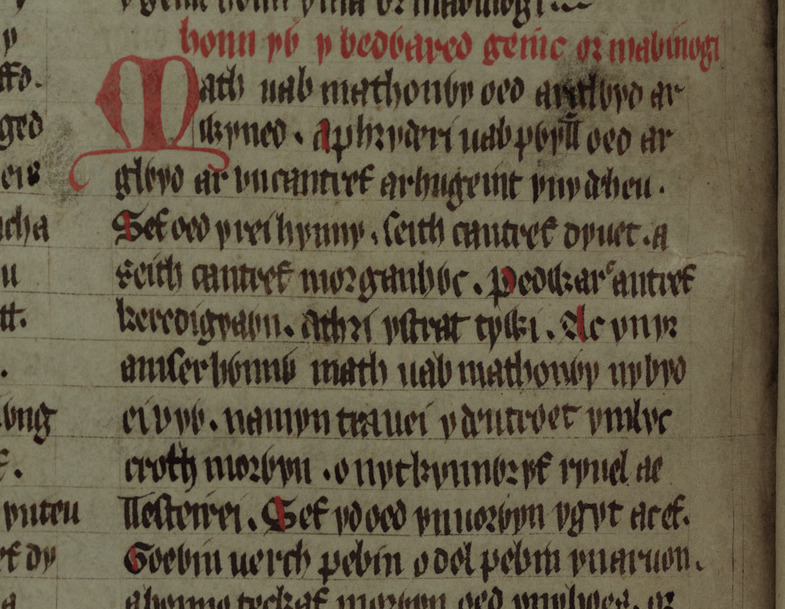 y
ffd.
ged
cha
u
tt.
.
wng
f.
ynteu
ef dy
a
y geinc honn yma or mabinogi.
honn yw y bedwared geinc or mabinogi
Math uab mathonwy oed arglwyd ar
wyned. aphryderi uab pwyll oed ar
glwyd ar vncantref arhugeint ynydeheu.
Sef oed yrei hynny. seith cantref dyuet. a
seith cantref morgannwc. Pedwar cantref
keredigyawn. athri ystrat tywi. Ac ynyr
amser hwnnw math uab mathonwy nybyd
ei vyw. namyn trauei ydeutroet ymlyc
croth morwyn. o nyt kynnwryf ryuel ae
llesteirei. Sef ydoed ynuorwyn ygyt acef.
Goewin uerch pebin odol pebin ynaruon.
ahonno teckaf morwyn oed ynyhoes. or